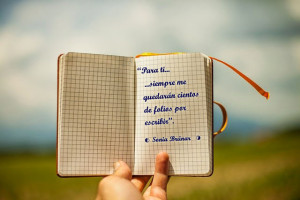 "Para ti...
...siempre me
quedarán cientos
de folios por
escribir".
Sonia Brúnar